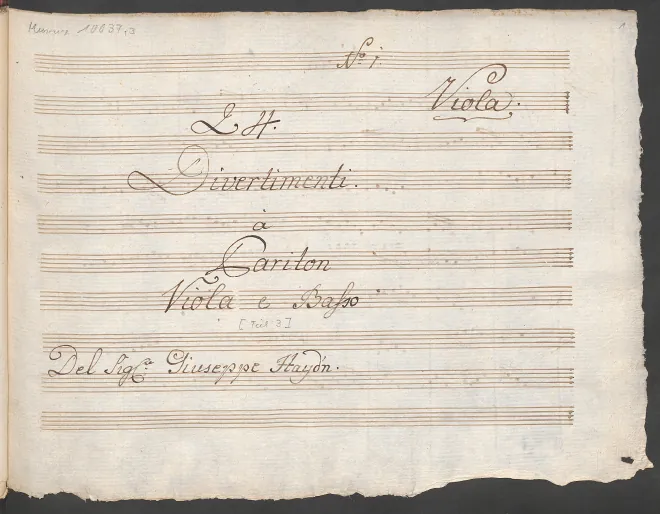 10637,3
1
No. 1.
Viola.
24.
Divertimenti.
à
Pariton
Viola e Basso
[Teil 3]
Del Sig:re Giuseppe Haydn.